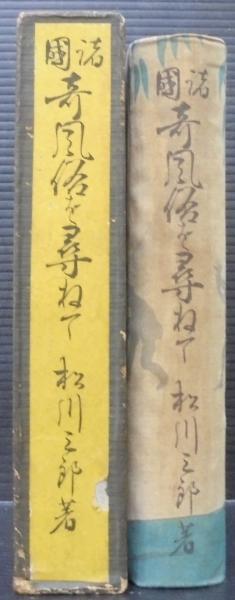 諸國 奇風俗を尋ねて 松川二郎著
諸國 奇風俗を尋ねて 松川二郎著